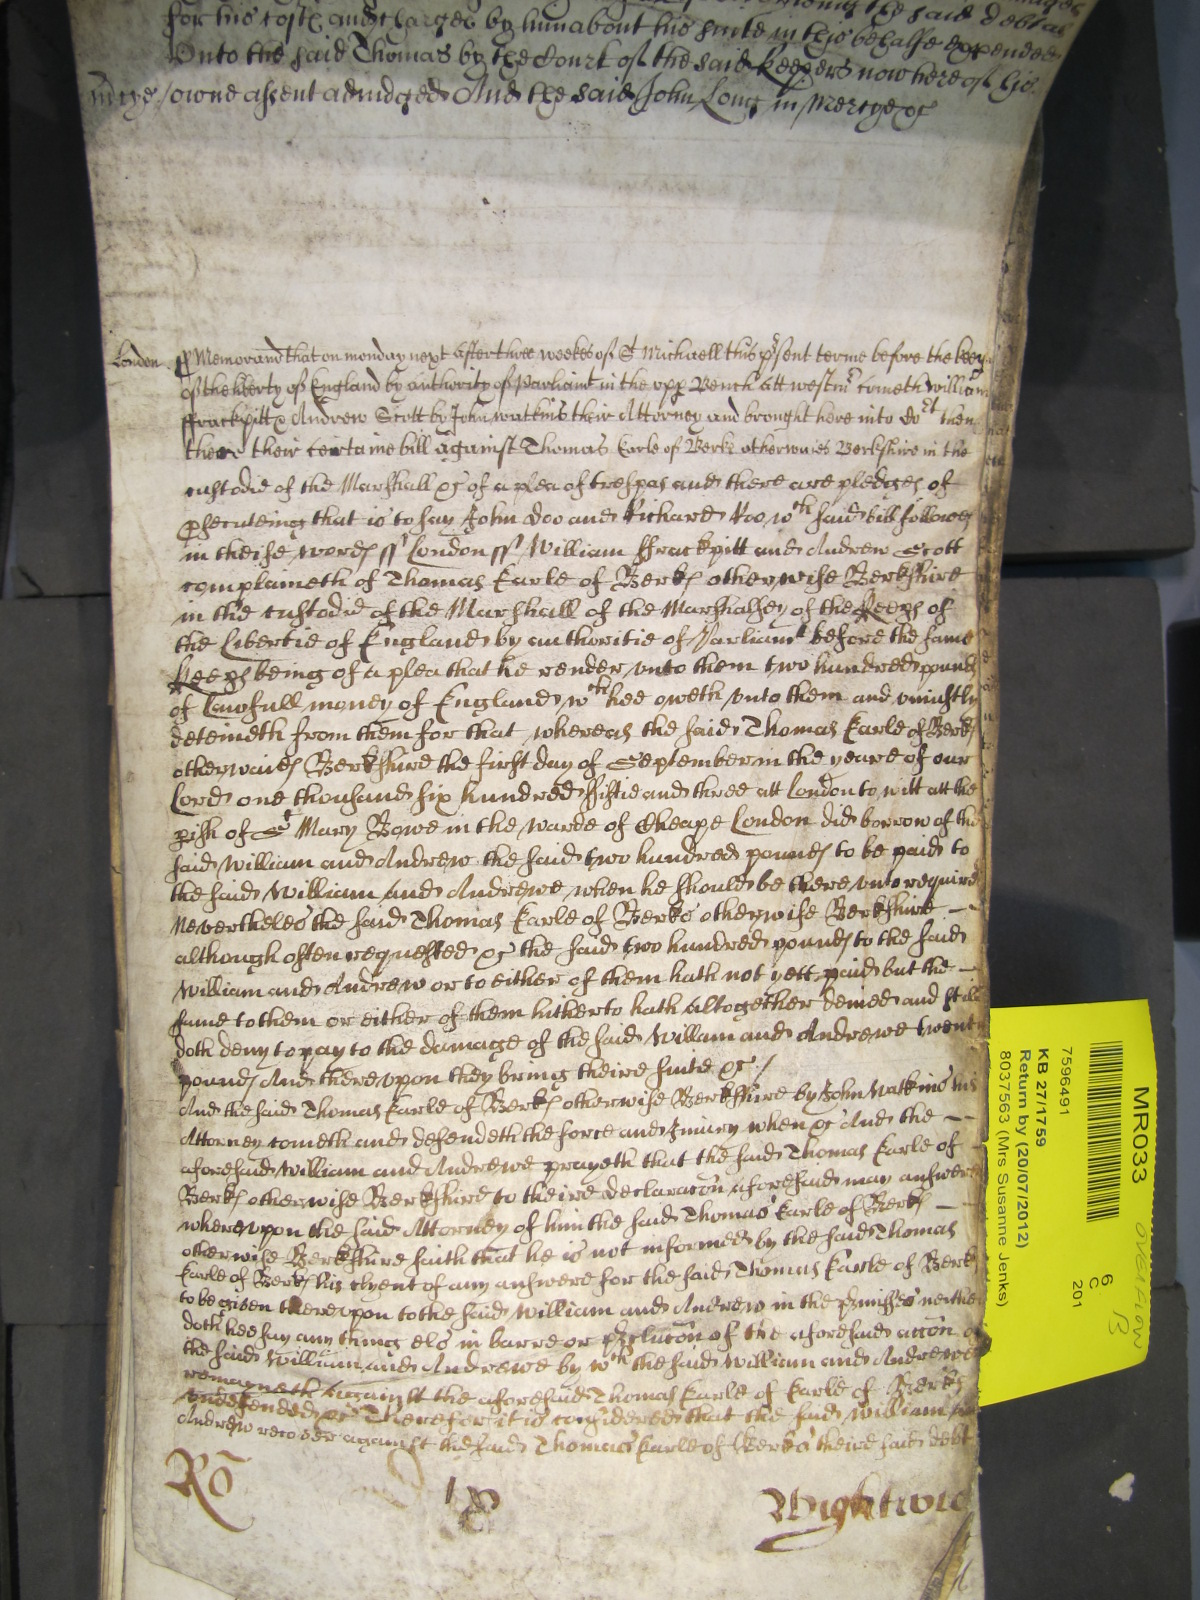 for his costs and charges by him about his suite in this behalfe expended
Unto the said Thomas by the Court of the said Keepers now here of his
owne assent adiudged And the said John Long in Mercye &c
London
Memorand that on monday next after three weekes of St Michaell this psent terme before the keeps
of the liberty of England by authority of Parliamt in the upp Bench att westmr cometh William
ffrackpitt & Andrew Scott by John watkins their Attorney and brought here into Cort then
there their certaine bill against Thomas Earle of Berks otherwaies Berkshire in the
custodie of the Marshall &c of a plea of trespas and there are pledges of
psecuteing that is to say John Doo and Richard Roo wch said bill followes
in theise words ss London ss William ffrackpitt and Andrew Scott
complaineth of Thomas Earle of Berks otherwise Berkshire
in the custodie of the Marshall of the Marshalsey of the Keeps of
the Libertie of England by authoritie of Parliamt before the same
Keeps being of a plea that he render unto them two hundred pounds
of Lawfull money of England wch hee oweth unto them and uniustly
deteineth from them for that whereas the said Thomas Earle of Berks
otherwaies Berkshire the first day of September in the yeare of our
Lord one thousand six hundred fiftie and three att London to witt att the
pish of St Mary Bowe in the warde of Cheape London did borrow of the
said William and Andrew the said two hundred pounds to be paid to
the said William and Andrewe when he should be there unto required
Nevertheles the said Thomas Earle of Berks otherwise Berkshire
although often requested &c the said two hundred pounds to the said
William and Andrew or to either of them hath not yett paid but the
same to them or either of them hitherto hath altogether denied and still
doth deny to pay to the damage of the said William and Andrewe twenty
pounds And thereupon they bring theire suite &c /
And the said Thomas Earle of Berks otherwise Berkshire by John Watkins his
Attorney cometh and defendeth the force and Iniury when &c And the
aforesaid William and Andrewe prayeth that the said Thomas Earle of
Berks otherwise Berkshire to theire declaracon aforesaid may answere
whereupon the said Attorney of him the said Thomas Earle of Berks
otherwise Berkshire saith that he is not informed by the said Thomas
Earle of Berks his clyent of any answere for the said Thomas Earle of Berks
to be given thereupon to the said William and Andrew in the pmisses neither
doth hee say any thing els in barre or pclucon of the aforesaid accon of
the said William and Andrewe by wch the said William and Andrewe
remayneth against the aforesaid Thomas Earle of Earle of Berks
undefended &c Therefore it is considered that the said William and
Andrew recover against the said Thomas Earle of Berks theire said debt
Ro
Wightwic
MR033
7596491
KB 27/1759
Return by (20/07/2012)
8037563 (Mrs Susanne Jenks)
6
C
201
OVERFLOW
B